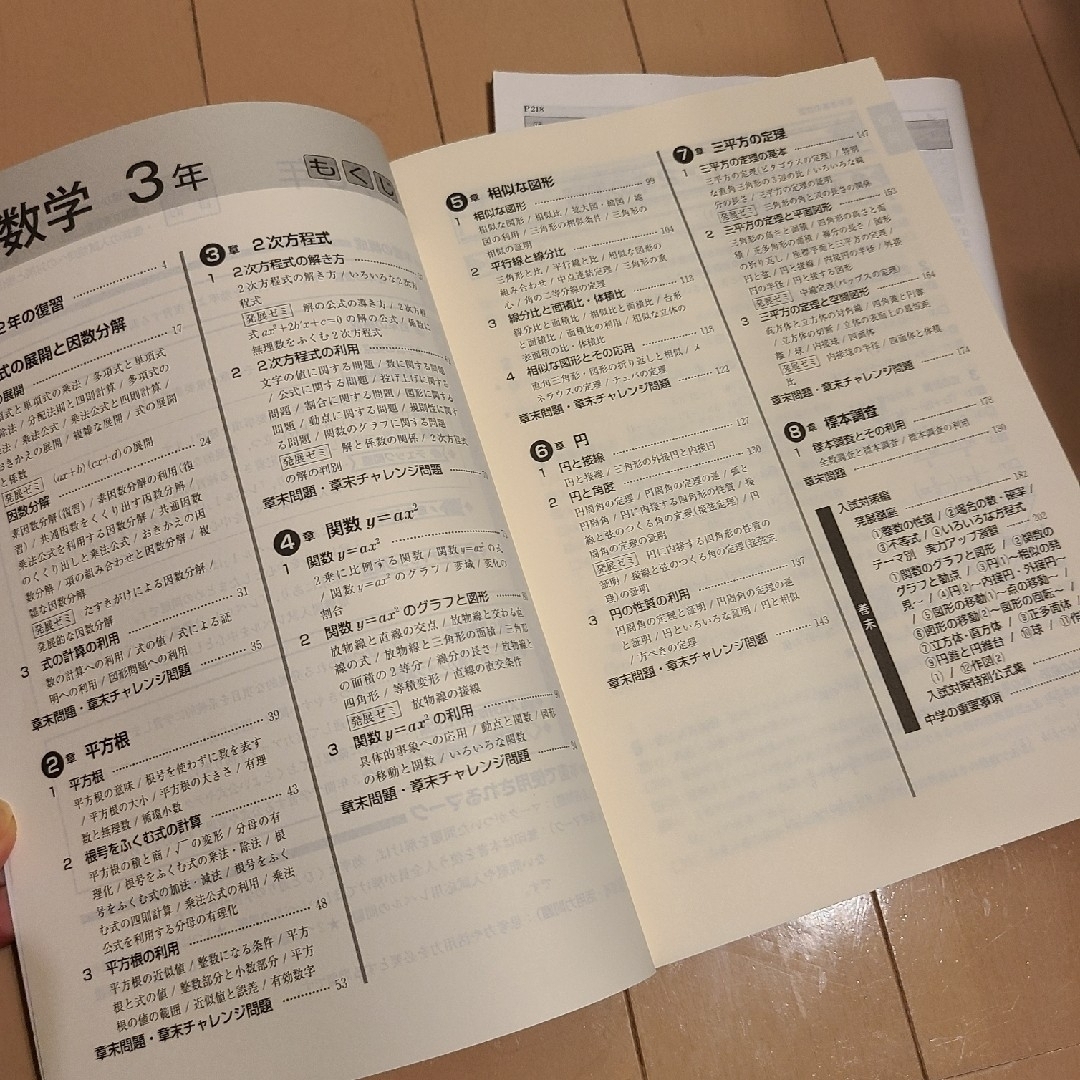 数学 3年
もくじ
2年の復習 4
式の展開と因数分解 17
の展開
項式と単項式の乗法/多項式と単項式
除法/分配法則と四則計算/多項式の
乗法/乗法公式/乗法公式と四則計算/
おきかえの展開/複雑な展開/式の展開
と係数
発展ゼミ (ax+b)(cx+d)の展開
因数分解 24
素因数分解(復習)/素因数分解の利用(復
習)/共通因数をくくり出す因数分解/
乗法公式を利用する因数分解/共通因数
のくくり出しと乗法公式/おきかえの因
数分解/項の組み合わせと因数分解/複
雑な因数分解
発展ゼミ たすきがけによる因数分解/
発展的な因数分解
3 式の計算の利用 31
数の計算への利用/式の値/式による証
明への利用/図形問題への利用
章末問題・章末チャレンジ問題 35
2章 平方根
1 平方根 39
平方根の意味/根号を使わずに数を表す
/平方根の大小/平方根の大きさ/有理
数と無理数/循環小数
2 根号をふくむ式の計算 43
平方根の積と商/√ の変形/分母の有
理化/根号をふくむ式の乗法・除法/根
号をふくむ式の加法・減法/根号をふく
む式の四則計算/乗法公式の利用/乗法
公式を利用する分母の有理化
3 平方根の利用 48
平方根の近似値/整数になる条件/平方
根と式の値/整数部分と小数部分/平方
根の値の範囲/近似値と誤差/有効数字
章末問題・章末チャレンジ問題 53
3章 2次方程式
1 2次方程式の解き方
2次方程式の解き方/いろいろな2次方
程式
発展ゼミ 解の公式の導き方/2次方程
式ax²+2b'x+c=0の解の公式/係数に
無理数をふくむ2次方程式
2 2次方程式の利用
文字の値に関する問題/数に関する問題
/公式に関する問題/投げ上げに関する
問題/割合に関する問題/図形に関する
問題/動点に関する問題/規則性に関す
る問題/関数のグラフに関する問題
発展ゼミ 解と係数の関係/2次方程式
の解の判別
章末問題・章末チャレンジ問題
4章 関数y=ax²
1 関数y=ax²
2乗に比例する関数/関数y=ax²の式
/関数y=ax²のグラフ/変域/変化の
割合
2 関数y=ax²のグラフと図形
放物線と直線の交点/放物線と交わる直
線の式/放物線と三角形の面積/三角形
の面積の2等分/線分の長さ/放物線と
四角形/等積変形/直線の直交条件
発展ゼミ 放物線の接線
3 関数y=ax²の利用
具体的事象への応用/動点と関数/図形
の移動と関数/いろいろな関数
章末問題・章末チャレンジ問題
P218
5章 相似な図形
1 相似な図形 99
相似な図形/相似比/拡大図・縮図/縮
図の利用/三角形の相似条件/三角形の
相似の証明
2 平行線と線分比 104
三角形と比/平行線と比/相似な図形の
組み合わせ/中点連結定理/三角形の重
心/角の二等分線の定理
3 線分比と面積比・体積比 113
線分比と面積比/相似比と面積比/台形
と面積比/面積比の利用/相似な立体の
表面積の比・体積比
4 相似な図形とその応用 118
直角三角形・図形の折り返しと相似/メ
ネラウスの定理/チェバの定理
章末問題・章末チャレンジ問題 122
6章 円
1 円と接線 127
円と接線/三角形の外接円と内接円
2 円と角度 130
円周角の定理/円周角の定理の逆/弧と
円周角/円に内接する四角形の性質/接
線と弦のつくる角の定理(接弦定理)/円
周角の定理の証明
発展ゼミ 円に内接する四角形の性質の
証明/接線と弦のつくる角の定理(接弦定
理)の証明
3 円の性質の利用 137
円周角の定理と証明/円周角の定理の逆
と証明/円といろいろな証明/円と相似
/方べきの定理
章末問題・章末チャレンジ問題 143
7章 三平方の定理
1 三平方の定理の基本 147
三平方の定理(ピタゴラスの定理)/特別
な直角三角形の3辺の比/いろいろな線
分の長さ/三平方の定理の証明
発展ゼミ 三角形の角と辺の長さの関係
2 三平方の定理と平面図形 153
三角形の高さと面積/四角形の高さと面
積/正多角形の面積/線分の長さ/図形
の折り返し/座標平面と三平方の定理/
円と弦/円と接線/内接円の半径/外接
円の半径/円と接する図形
発展ゼミ 中線定理(パップスの定理)
3 三平方の定理と空間図形 164
直方体と立方体の対角線/四角錐と円錐
/立方体の切断/立体の表面上の最短距
離/球/内接球/四面体
発展ゼミ 内接球の半径/四面体と体積
比
章末問題・章末チャレンジ問題 174
8章 標本調査
1 標本調査とその利用 178
全数調査と標本調査/標本調査の利用
章末問題 180
巻末
入試対策編
実戦講座 182
①整数の性質/②場合の数・確率/
③不等式/④いろいろな方程式
テーマ別 実力アップ演習 202
①関数のグラフと図形/②関数の
グラフと動点/③円①〜相似の発
見〜/④円②〜内接円・外接円〜
/⑤図形の移動①〜点の移動〜/
⑥図形の移動②〜図形の回転〜
⑦立方体・直方体/⑧正多面体/
⑨円錐と円錐台/⑩球/⑪作
①/⑫作図②
入試対策特別公式集
中学の重要事項